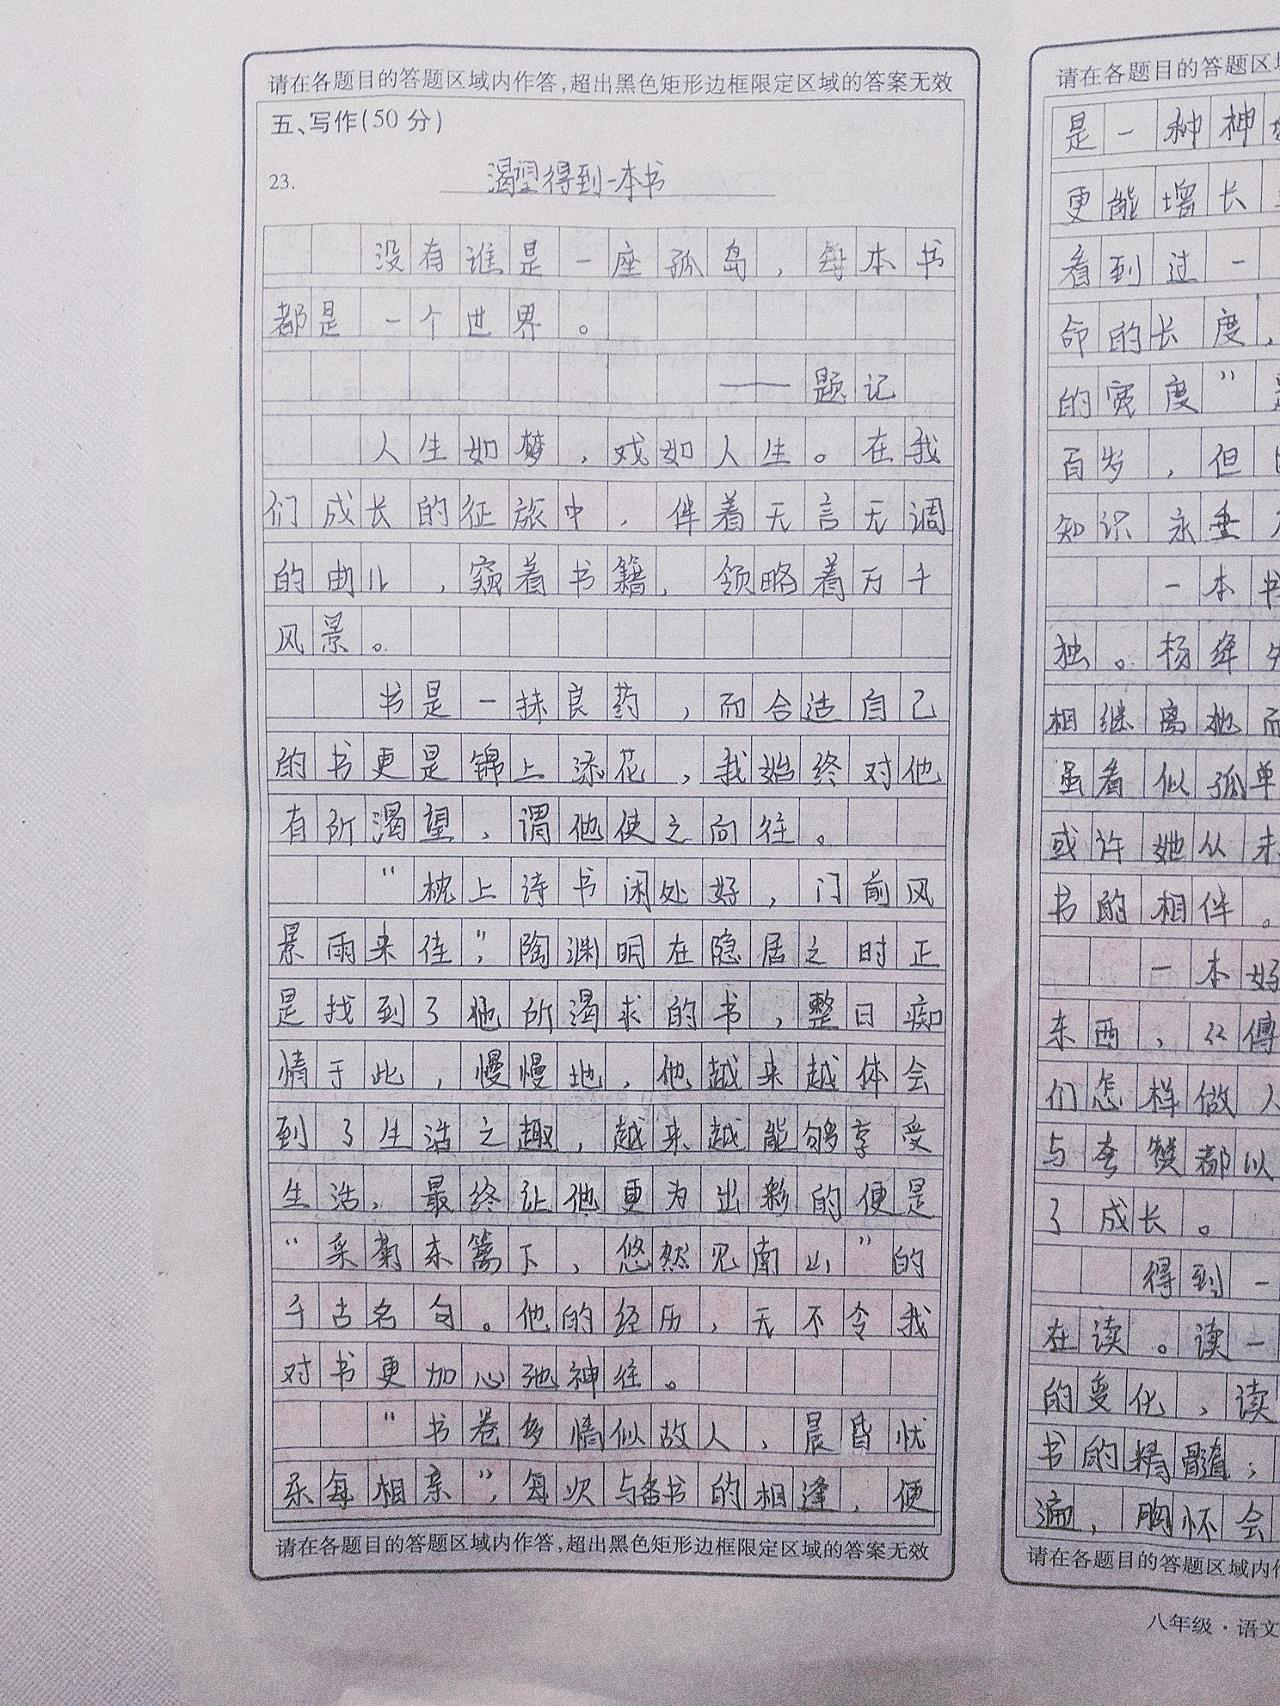 请在各题目的答题区域内作答,超出黑色矩形边框限定区域的答案无效
五、写作(50分)
23. 渴望得到一本书
没有谁是一座孤岛，每本书
都是一个世界。
——题记
人生如梦，戏如人生。在我
们成长的征旅中，伴着无言无调
的曲儿，窥着书籍，领略着万千
风景。
书是一抹良药，而合适自己
的书更是锦上添花，我始终对他
有所渴望，谓他使之向往。
“枕上诗书闲处好，门前风
景雨来佳”，陶渊明在隐居之时正
是找到了他所渴求的书，整日痴
情于此，慢慢地，他越来越体会
到了生活之趣，越来越能够享受
生活，最终让他更为出彩的便是
“采菊东篱下，悠然见南山”的
千古名句。他的经历，无不令我
对书更加心驰神往。
“书卷多情似故人，晨昏忧
乐每相亲”，每次与各书的相逢，便
请在各题目的答题区域内作答,超出黑色矩形边框限定区域的答案无效
请在各题目的答题区
是一种神
更能增长
看到过一
命的长度，
的宽度”
百岁，但
知识永垂
一本书
独。杨绛
相继离她而
虽看似孤单
或许她从未
书的相伴。
一本好
东西，《傅
们怎样做人
与赞都以
了成长。
得到一
在读。读一
的变化，读
书的精髓；
遍，胸怀会
请在各题目的答题区域内
八年级·语文